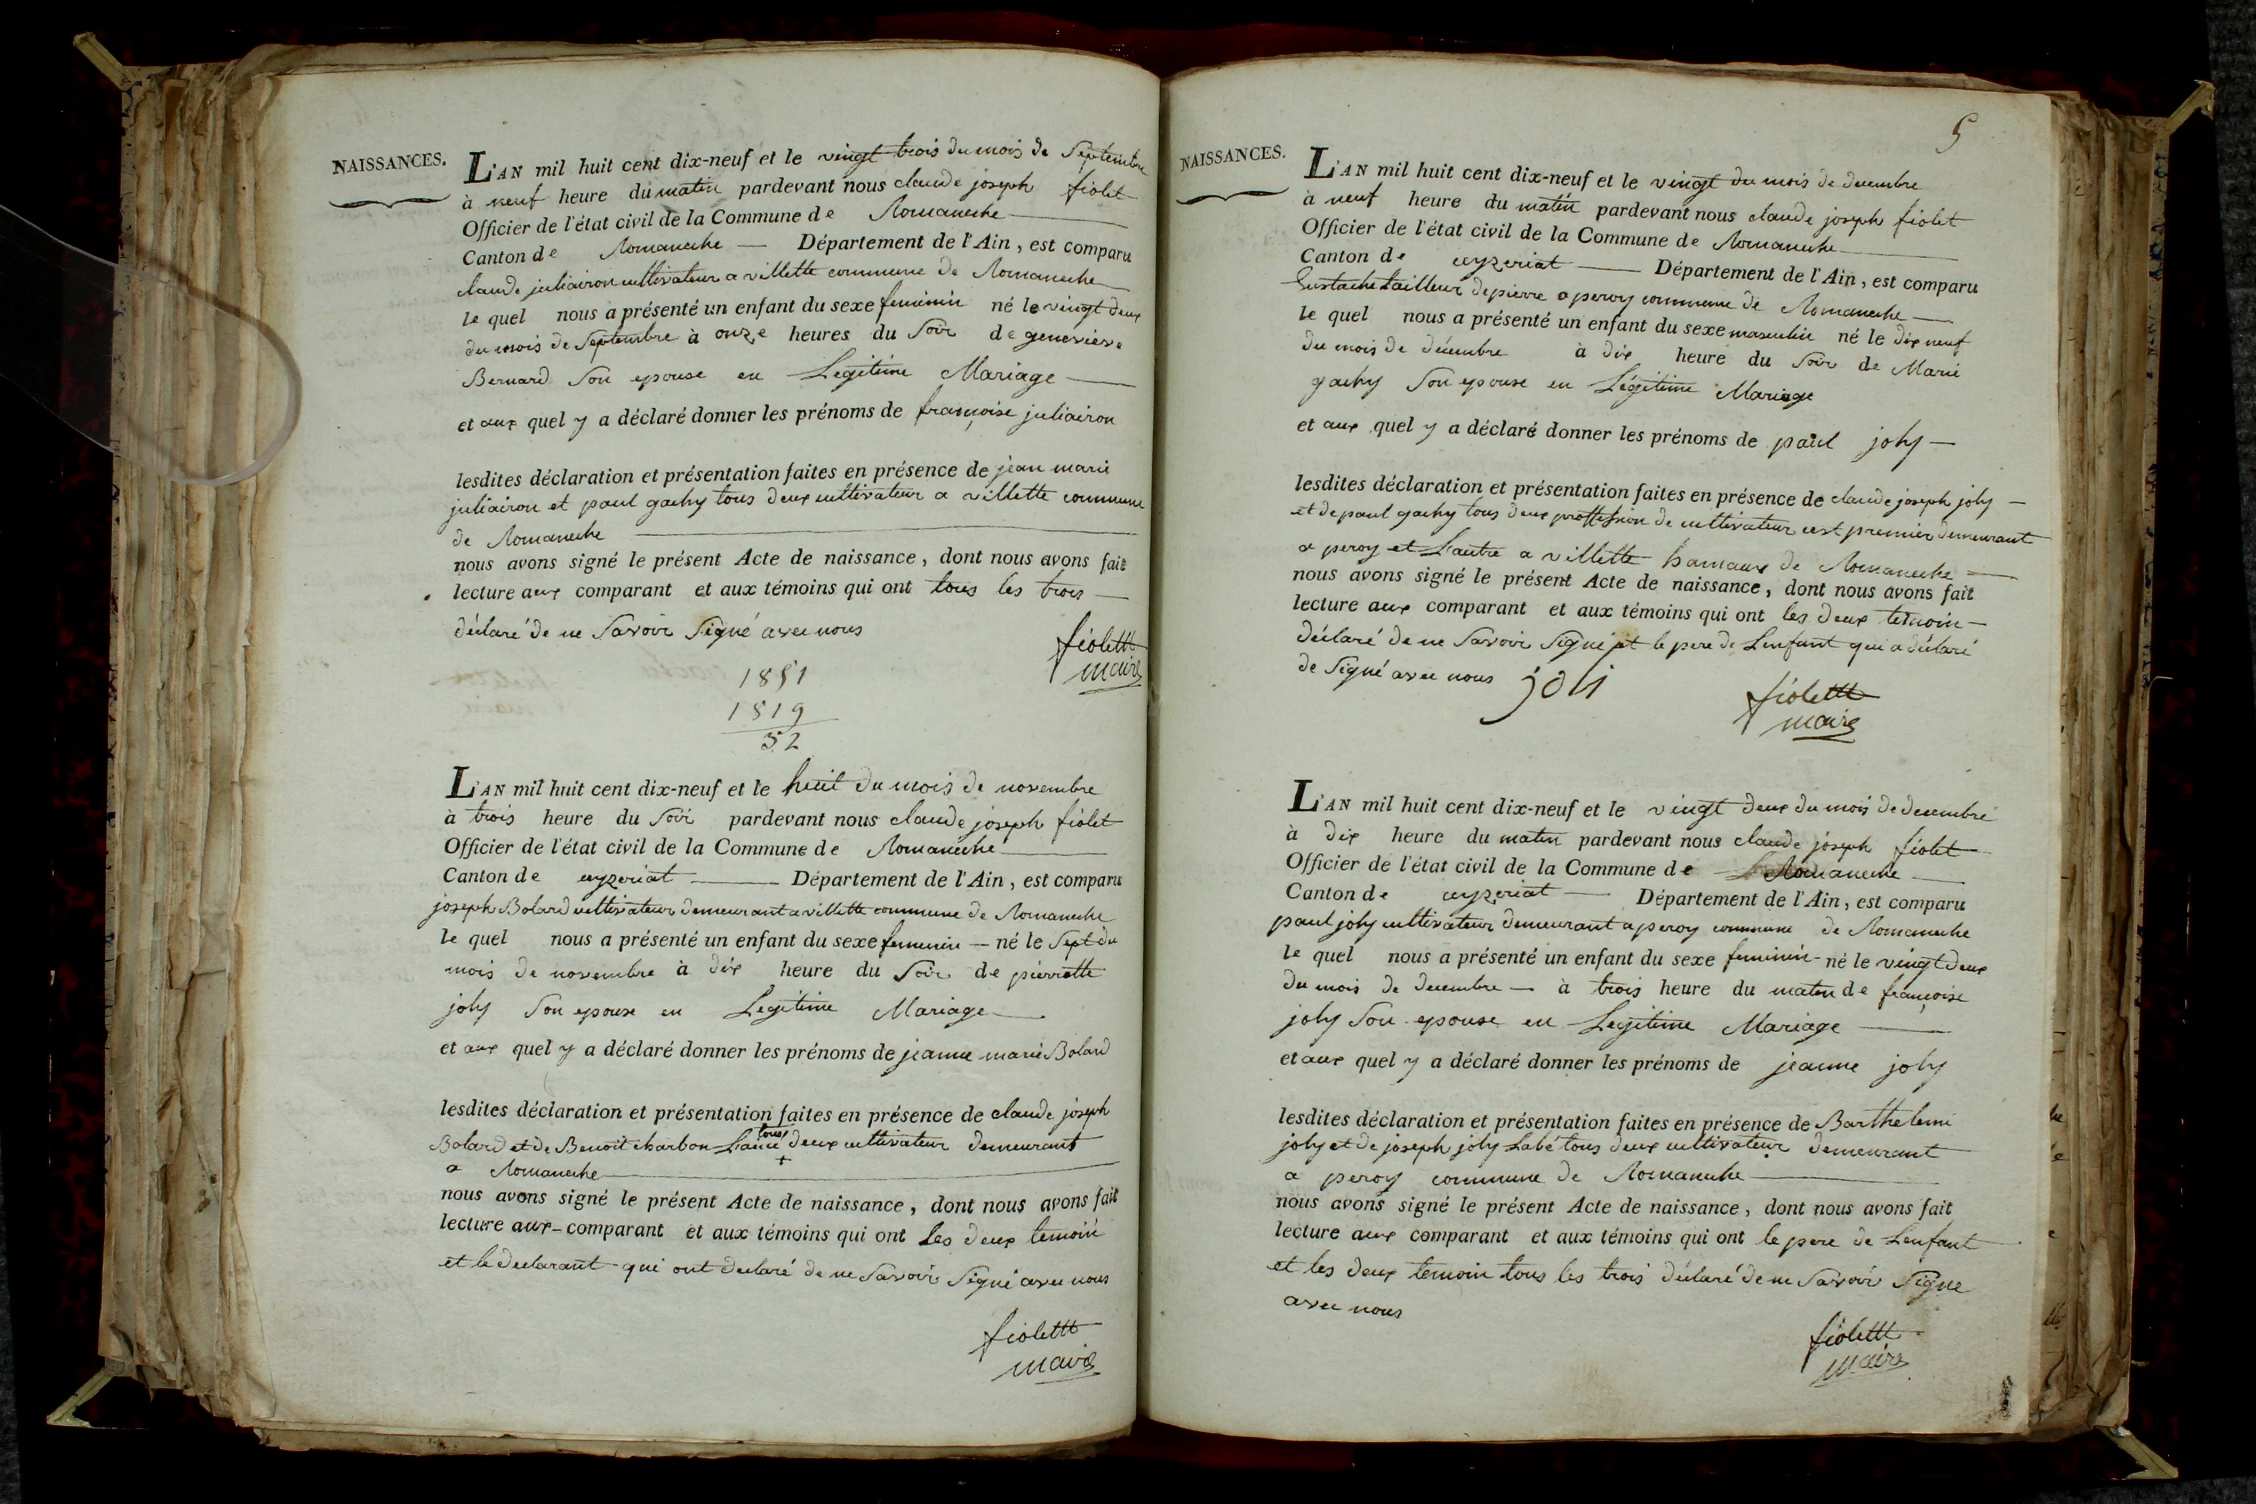 NAISSANCES.
L'AN mil huit cent dix-neuf et le vingt trois du mois de Septembre
à neuf heure du matin pardevant nous claude joseph fiolet
Officier de l'état civil de la Commune de Romaneche
Canton de Romaneche Département de l'Ain, est comparu
claude juliairon cultivateur a villette commune de Romaneche
le quel nous a présenté un enfant du sexe feminin né le vingt deux
du mois de Septembre à onze heures du Soir de genevieve
Bernard Son epouse en Legitime Mariage
et aux quel y a déclaré donner les prénoms de françoise juliairon
lesdites déclaration et présentation faites en présence de jean marie
juliairon et paul gachy tous deux cultivateur a villette commune
de Romaneche
nous avons signé le présent Acte de naissance, dont nous avons fait
lecture aux comparant et aux témoins qui ont tous les trois
déclaré de ne Savoir Signé avec nous
fiolettt
maire
1851
1819
32
L'AN mil huit cent dix-neuf et le huit du mois de novembre
à trois heure du Soir pardevant nous claude joseph fiolet
Officier de l'état civil de la Commune de Romaneche
Canton de ceyzeriat Département de l'Ain, est comparu
joseph Bolard cultivateur demeurant a villette commune de Romaneche
le quel nous a présenté un enfant du sexe femenin né le Sept du
mois de novembre à dix heure du Soir de pierrette
joly Son epouse en Legitime Mariage
et aux quel y a déclaré donner les prénoms de jeanne marie Bolard
lesdites déclaration et présentation faites en présence de claude joseph
Bolard et de Benoit charbon Lainé tous deux cultivateur demeurant
a Romaneche
nous avons signé le présent Acte de naissance, dont nous avons fait
lecture aux comparant et aux témoins qui ont Les deux temoin
et le declarant qui ont declaré de ne Savoir Signé avec nous
fiolettt
maire
5
NAISSANCES.
L'AN mil huit cent dix-neuf et le vingt du mois de decembre
à neuf heure du matin pardevant nous claude joseph fiolet
Officier de l'état civil de la Commune de Romaneche
Canton de ceyzeriat Département de l'Ain, est comparu
Eustache tailleur de pierre a peroy commune de Romaneche
le quel nous a présenté un enfant du sexe masculin né le dix neuf
du mois de décembre à dix heure du Soir de Marie
gachy Son epouse en Légitime Mariage
et aux quel y a déclaré donner les prénoms de paul joly
lesdites déclaration et présentation faites en présence de claude joseph joly
et de paul gachy tous deux proffession de cultivateur cest premier demeurant
a peroy et Lautre a villette hamaux de Romaneche
nous avons signé le présent Acte de naissance, dont nous avons fait
lecture aux comparant et aux témoins qui ont les deux temoin
déclaré de ne Savoir Signé et le pere de Lenfant qui a déclaré
de Signé avec nous joli
fiolettt
maire
L'AN mil huit cent dix-neuf et le vingt deux du mois de decembre
à dix heure du matin pardevant nous claude joseph fiolet
Officier de l'état civil de la Commune de Romaneche
Canton de ceyzeriat Département de l'Ain, est comparu
paul joly cultivateur demeurant a peroy commune de Romaneche
le quel nous a présenté un enfant du sexe feminin né le vingt deux
du mois de decembre à trois heure du matin de françoise
joly Son epouse en Legitime Mariage
et aux quel y a déclaré donner les prénoms de jeanne joly
lesdites déclaration et présentation faites en présence de Barthelemi
joly et de joseph joly Labé tous deux cultivateur demeurant
a peroy commune de Romaneche
nous avons signé le présent Acte de naissance, dont nous avons fait
lecture aux comparant et aux témoins qui ont le pere de Lenfant
et les deux temoin tous les trois déclaré de ne Savoir Signe
avec nous
fiolettt
maire